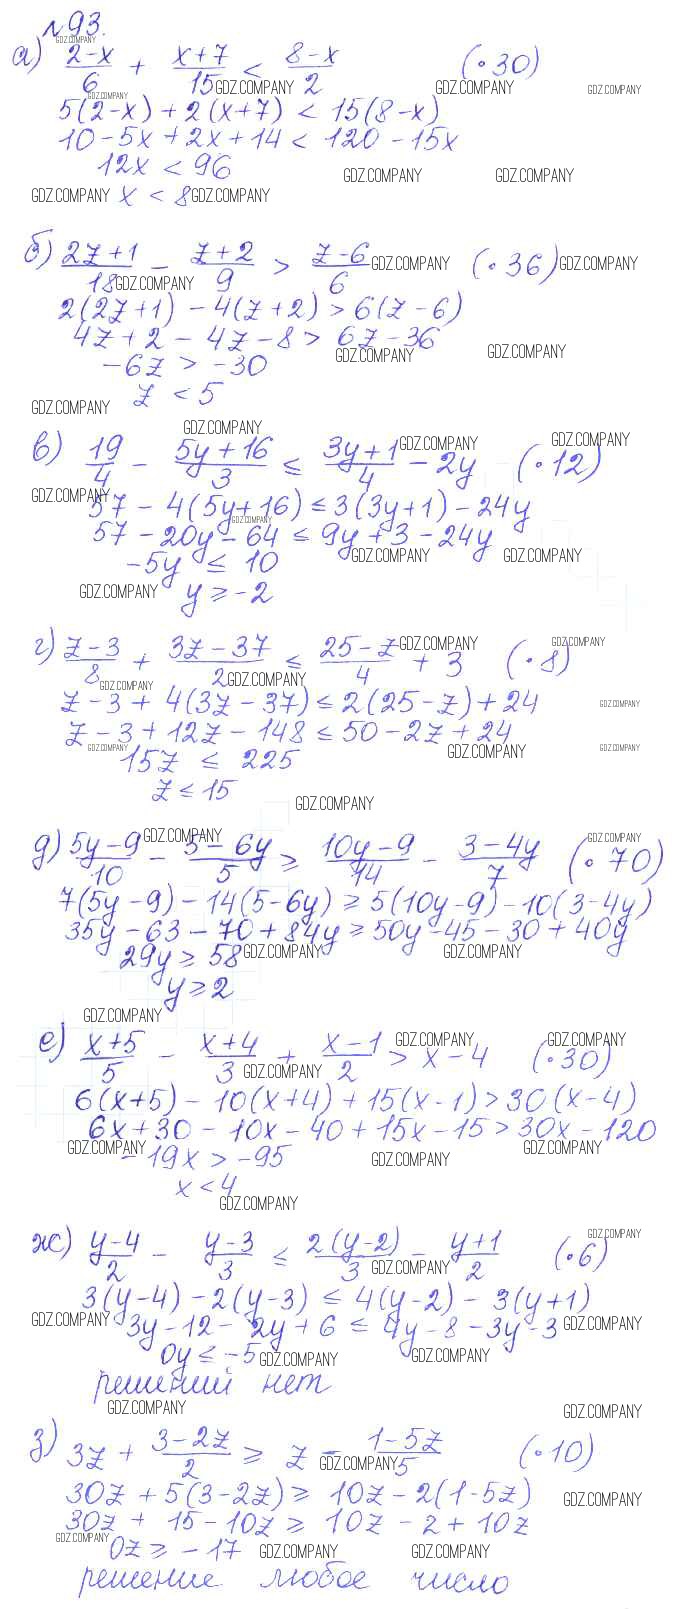 №93.
а) (2-x)/6 + (x+7)/15 < (8-x)/2 (·30)
5(2-x) + 2(x+7) < 15(8-x)
10-5x+2x+14 < 120-15x
12x < 96
x < 8
б) (2z+1)/18 - (z+2)/9 > (z-6)/6 (·36)
2(2z+1) - 4(z+2) > 6(z-6)
4z+2 - 4z-8 > 6z-36
-6z > -30
z < 5
в) 19/4 - (5y+16)/3 ≤ (3y+1)/4 - 2y (·12)
57 - 4(5y+16) ≤ 3(3y+1) - 24y
57 - 20y - 64 ≤ 9y+3 - 24y
-5y ≤ 10
y ≥ -2
г) (z-3)/8 + (3z-37)/2 ≤ (25-z)/4 + 3 (·8)
z-3 + 4(3z-37) ≤ 2(25-z) + 24
z-3 + 12z - 148 ≤ 50-2z + 24
15z ≤ 225
z ≤ 15
д) (5y-9)/10 - (5-6y)/5 ≥ (10y-9)/14 - (3-4y)/7 (·70)
7(5y-9) - 14(5-6y) ≥ 5(10y-9) - 10(3-4y)
35y-63 - 70 + 84y ≥ 50y-45 - 30 + 40y
29y ≥ 58
y ≥ 2
е) (x+5)/5 - (x+4)/3 + (x-1)/2 > x-4 (·30)
6(x+5) - 10(x+4) + 15(x-1) > 30(x-4)
6x+30 - 10x-40 + 15x-15 > 30x-120
-19x > -95
x < 4
ж) (y-4)/2 - (y-3)/3 ≤ 2(y-2)/3 - (y+1)/2 (·6)
3(y-4) - 2(y-3) ≤ 4(y-2) - 3(y+1)
3y-12 - 2y+6 ≤ 4y-8-3y-3
0y ≤ -5
решений нет
з) 3z + (3-2z)/2 ≥ z - (1-5z)/5 (·10)
30z + 5(3-2z) ≥ 10z - 2(1-5z)
30z + 15-10z ≥ 10z - 2 + 10z
0z ≥ -17
решение любое число
GDZ.COMPANY